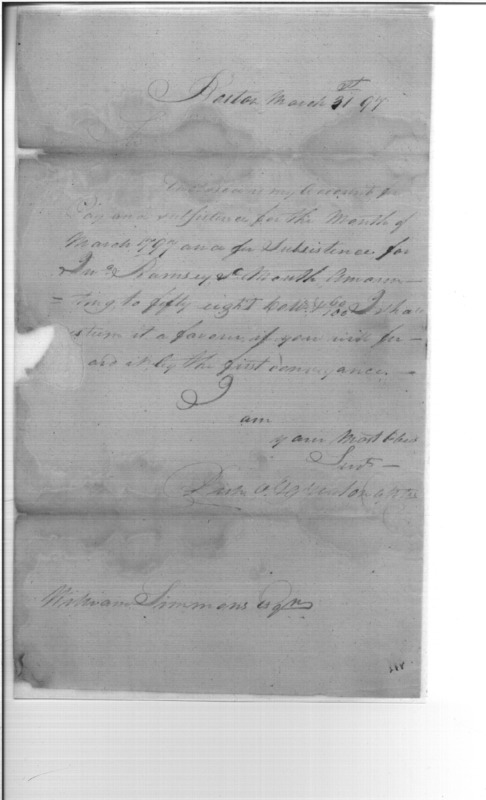 Boston March 31st 97
Enclosed is my Account for
Pay and Subsistence for the Month of
March 1797 and for Subsistence for
Ramsey Month Amoun-
=ting to fifty eight dolls. & 60/100 I shall
esteem it a favour if you will for-
ard it by the first conveyance -
I
am
your Most Obed
Servt -
William Simmons Esqr